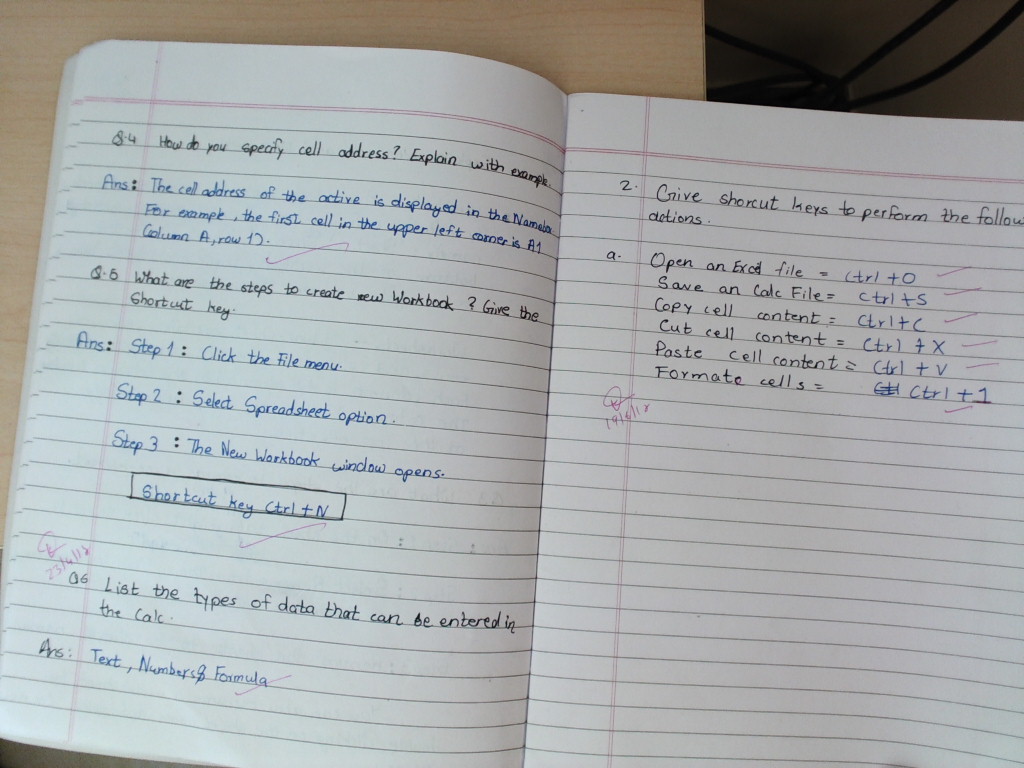 Q.4 How do you specify cell address? Explain with example.
Ans: The cell address of the active is displayed in the Namebox
For example, the first cell in the upper left corner is A1
Column A, row 1).
Q.5 What are the steps to create new Workbook ? Give the
Shortcut key.
Ans: Step 1 : Click the File menu.
Step 2 : Select Spreadsheet option.
Step 3 : The New Workbook window opens.
Shortcut key Ctrl + N
23/4/18
Q6 List the types of data that can be entered in
the Calc.
Ans: Text, Numbers & Formula
2. Give shorcut keys to perform the follow
actions.
a. Open an Excel file = Ctrl + O
Save an Calc File = Ctrl + S
Copy cell content = Ctrl + C
Cut cell content = Ctrl + X
Paste cell content = Ctrl + V
Formate cells = Ctrl + 1
19/6/18